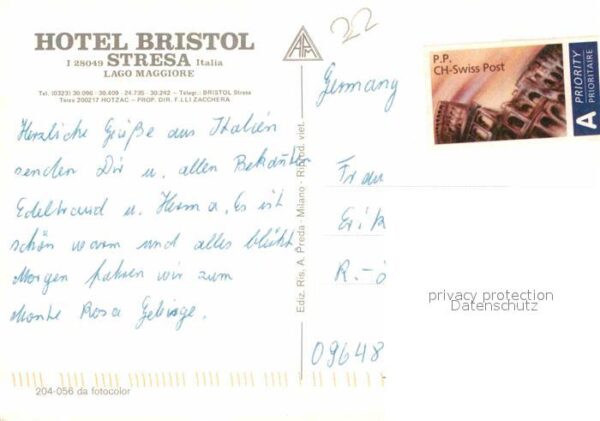 HOTEL BRISTOL
I 28049 STRESA Italia
LAGO MAGGIORE
Tel. (0323) 30.096 - 30.409 - 24.735 - 30.242 - Telegr.: BRISTOL Stresa
Telex 200217 HOTZAC - PROP. DIR. F.LLI ZACCHERA
22
Germany
P.P.
CH-Swiss Post
A PRIORITY
PRIORITAIRE
Herzliche Grüße aus Italien
senden Dir u. allen Bekannten
Edeltraud u. Herma. Es ist
schön warm und alles blüht
Morgen fahren wir zum
Monte Rosa Gebirge.
Ediz. Ris. A. Preda - Milano - Riprod. viet.
Frau
Erik
R.-
09648
privacy protection
Datenschutz
204-056 da fotocolor